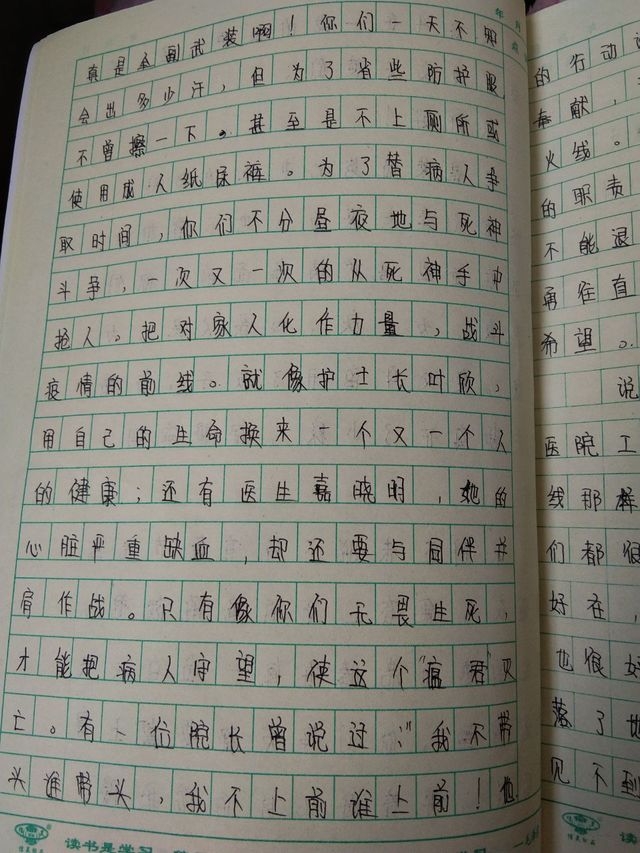 真是全副武装啊！你们一天不知
会出多少汗，但为了省些防护服
不曾擦一下。甚至是不上厕所或
使用成人纸尿裤。为了替病人争
取时间，你们不分昼夜地与死神
斗争，一次又一次的从死神手中
抢人。把对家人化作力量，战斗
疫情的前线。就像护士长叶欣，
用自己的生命换来一个又一个人
的健康；还有医生嘉晓明，她的
心脏严重缺血，却还要与同伴并
肩作战。只有像你们无畏生死，
才能把病人守望，使这个“瘟君”灭
亡。有一位院长曾说过：“我不带
头谁带头，我不上前谁上前！他
读书是学习
的行动
奉献，
火线。
的职责
不能退
勇往直
希望。
说
医院工
线那样
们都很
好在，
也很好
落了地
见不到
读